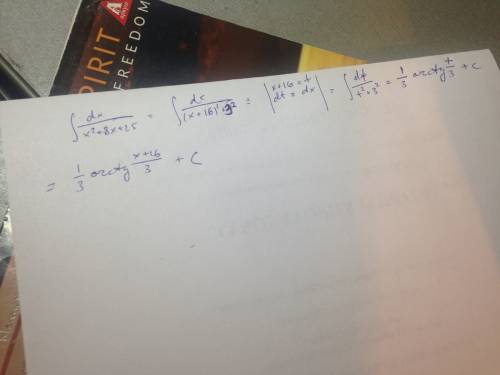 SPIRIT
FREEDOM
A
∫ dx / (x² + 8x + 25) = ∫ dx / ((x+16)² + 3²) = | x+16 = t
dt = dx | = ∫ dt / (t² + 3²) = 1/3 arctg t/3 + C
= 1/3 arctg (x+16)/3 + C